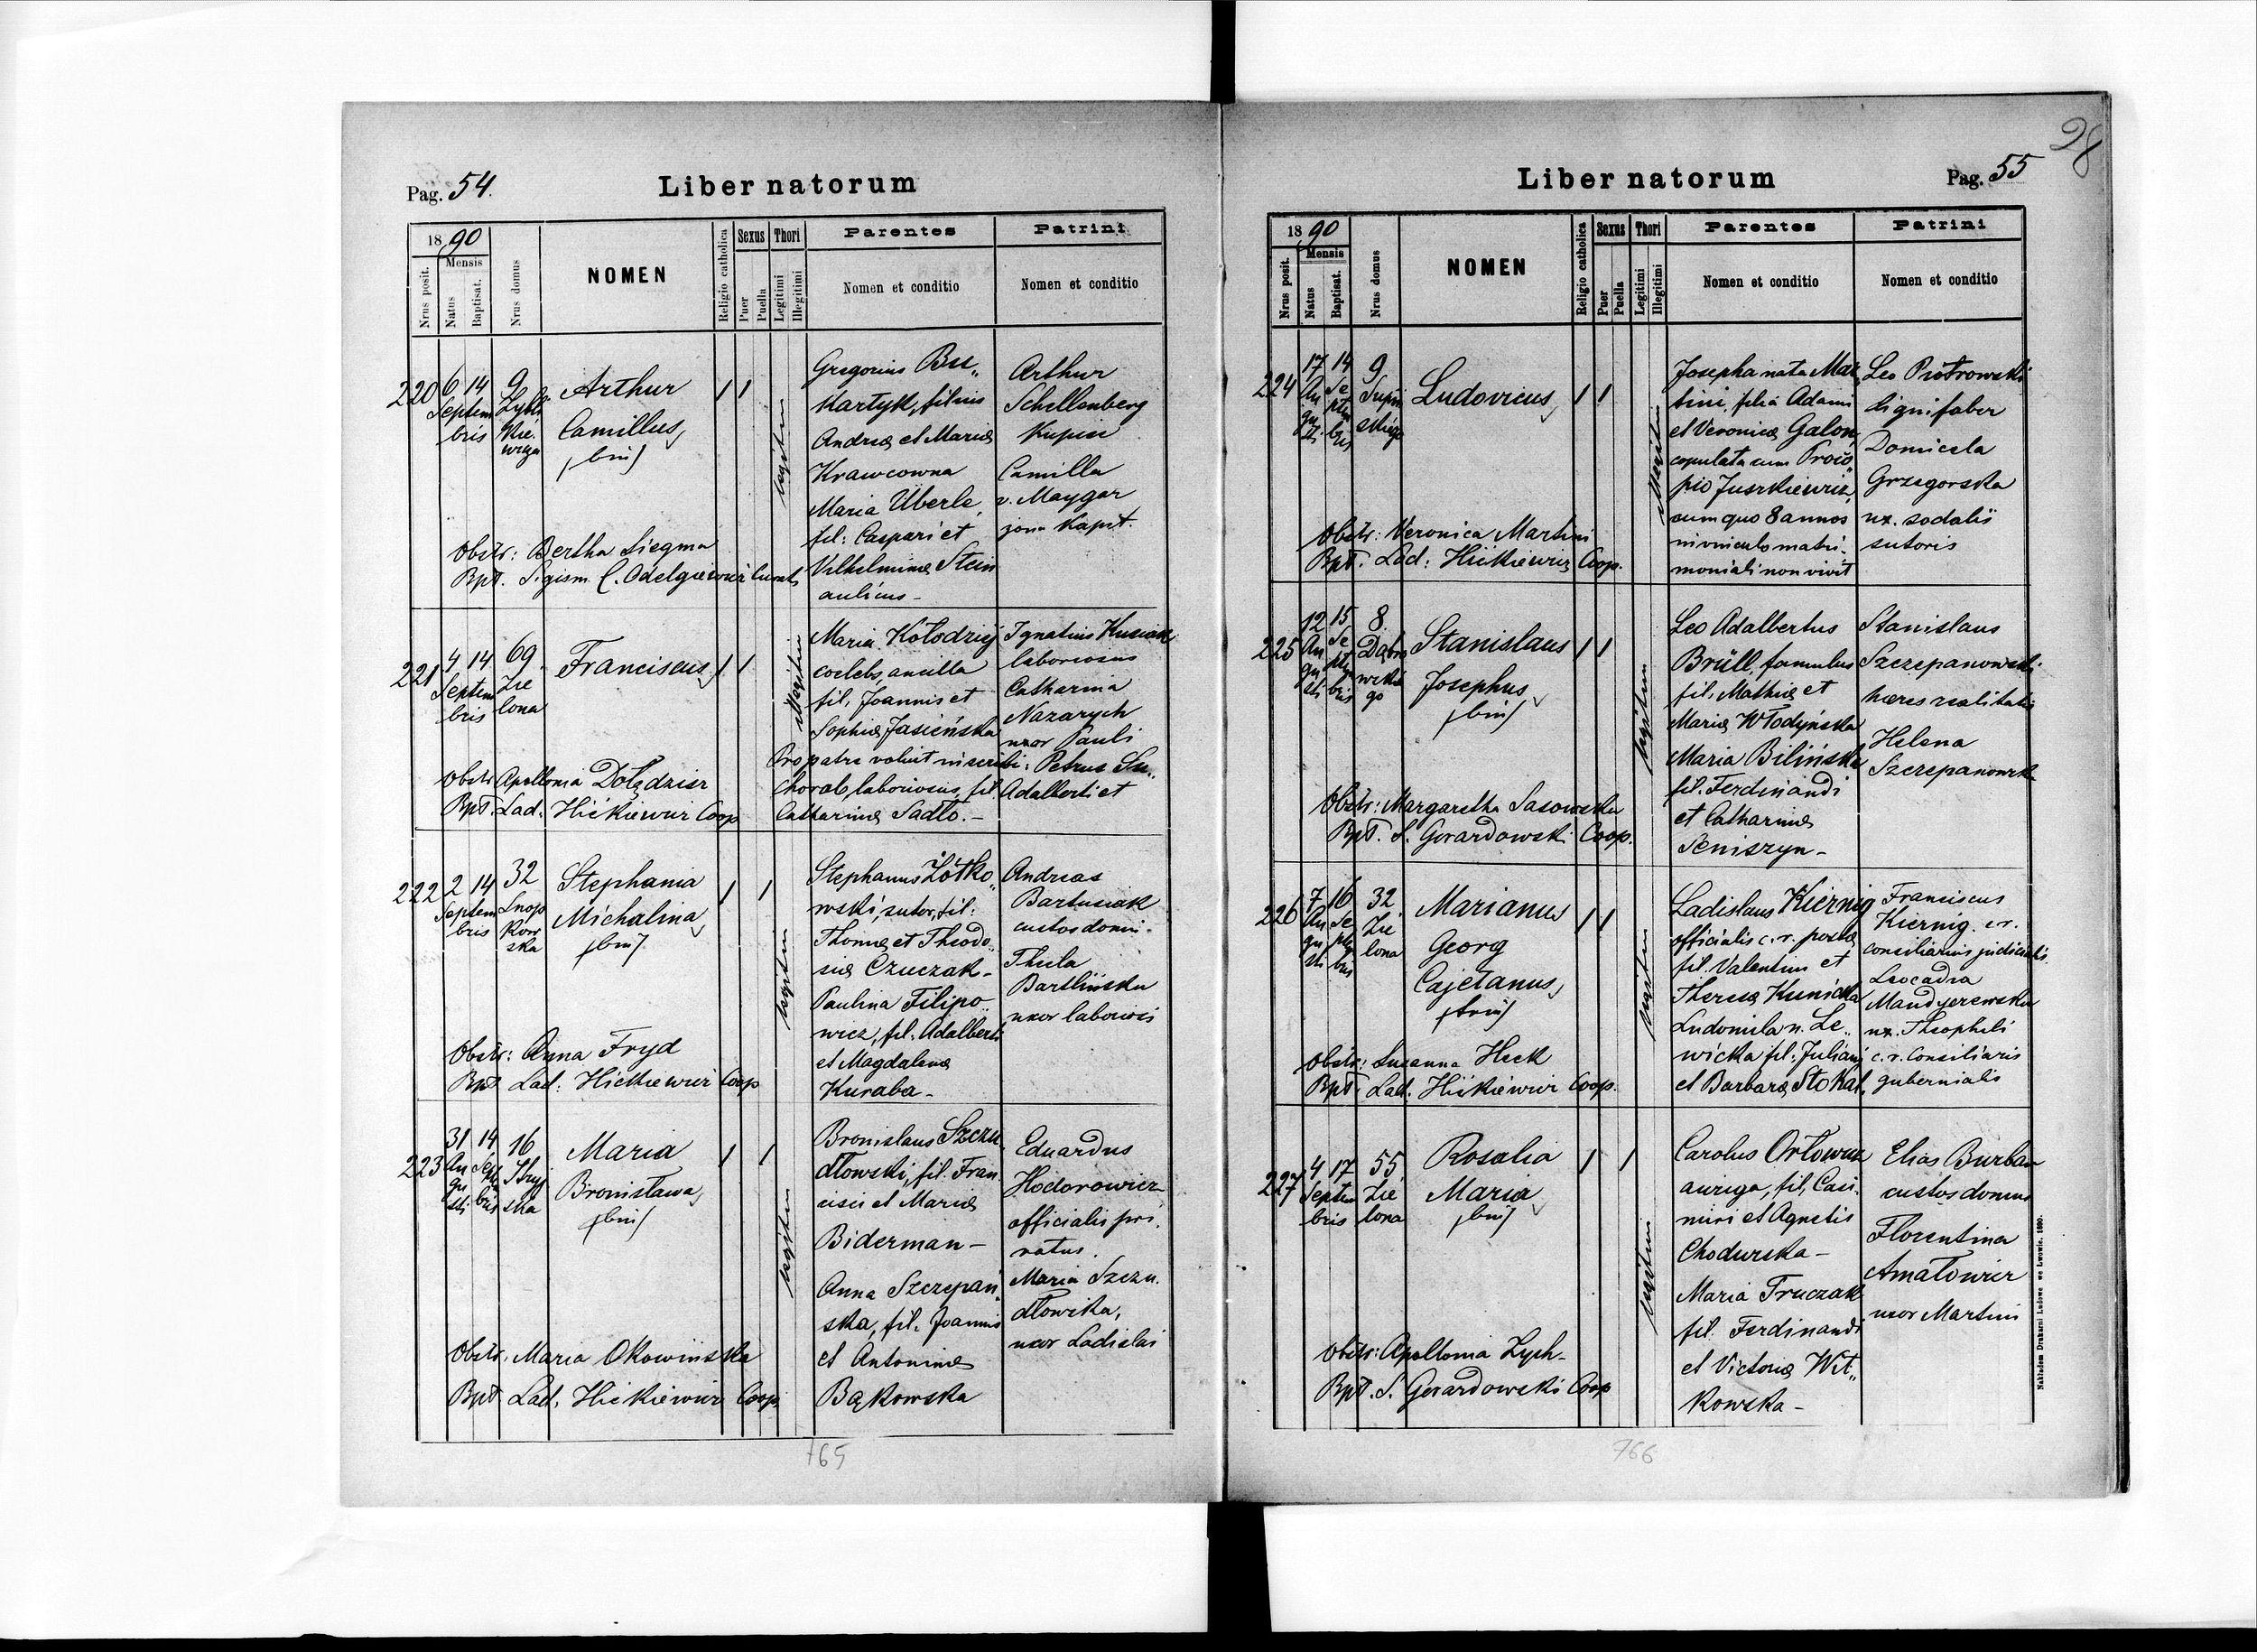 Pag. 54.
Liber natorum
1890
Mensis
Nrus posit.
Natus
Baptisat.
Nrus domus
NOMEN
Religio catholica
Sexus
Puer
Puella
Thori
Legitimi
Illegitimi
Parentes
Nomen et conditio
Patrini
Nomen et conditio
220
6 14
Septem
bris
9
Arthur
Camillus,
(bin)
legitim
Gregorius
Kartyk, filius
Andreæ et Mariæ
Krawcowna
Maria Überle,
fil: Caspari et
Vilhelminæ Stein
aulicus -
Arthur
Schellenberg
Kupiec
Camilla
v. Maygar
żona Kapit.
Obstr: Bertha Siegma
Bpt. Sigism.
221
4 14
Septem
bris
69
Zie
lona
Franciscus
illegitim
Maria Kołodziej
coelebs, ancilla
fil, Joannis et
Sophiæ Jasieńska
Ignatius Kusiak
laboriosus
Catharina
Nazarych
uxor Pauli
Pro patre voluit inscribi: Petrus Su„
chorab laboriosus, fil. Adalberti et
Catharinæ Sadło. -
Obstr. Apollonia Dołędzier
Bpt. Lad. Hićkiewicz Coop
222
2 14
Septem
bris
32
Snop
kow
ska
Stephania
Michalina
(bin)
legitim
Stephanus Żółko„
wski, sutor, fil:
Thomæ et Theodo„
siæ Czuczak -
Paulina Filipo„
wicz, fil. Adalberti
et Magdalenæ
Kuraba -
Andreas
Bartusiak
custos domi.
Thecla
Barlińska
uxor laboriosi
Obstr: Anna Fryd
Bpt. Lad. Hićkiewicz Coop
223
31 14
Au
gu
sti
Septem
bris
16
Stryj
ska
Maria
Bronisława,
(bin)
legitim
Bronislaus Szczu
dłowski, fil. Fran
cisci et Mariæ
Biderman -
Anna Szczepań„
ska, fil. Joannis
et Antoninæ
Bąkowska
Eduardus
Hodorowicz
officialis pri.
vatus.
Maria Szczu.
dłowska,
uxor Ladislai
Obstr. Maria Okowińska
Bpt Lad. Hićkiewicz Coop.
765
98
Liber natorum
Pag. 55
1890
Mensis
Nrus posit.
Natus
Baptisat.
Nrus domus
NOMEN
Religio catholica
Sexus
Puer
Puella
Thori
Legitimi
Illegitimi
Parentes
Nomen et conditio
Patrini
Nomen et conditio
224
17 14
Au
gu
sti
Se
ptem
bris
9
Supiń
skiego
Ludovicus
illegitim
Josepha nata Mar
tini, filia Adami
et Veronicæ Galon,
copulata cum Proco„
pio Juszkiewicz,
cum quo 8 annos
in vinculo matri-
moniali non vivit
Leo Piotrowski
lignifaber
Domicela
Grzegorska
ux. sodalis
sutoris
Obstr: Veronica Martini
Bpt. Lad: Hićkiewicz Coop.
225
12 15
Au
gu
sti
Se
ptem
bris
8
Dąbro
wskie
go
Stanislaus
Josephus
(bin)
legitim
Leo Adalbertus
Brüll, famulus
fil. Mathiæ et
Mariæ Włodyńska
Maria Bilińska
fil. Ferdinandi
et Catharinæ
Seniszyn -
Stanislaus
Szczepanowski
hæres realitatis
Helena
Szczepanowska
Obstr: Margaretha Sasowska
Bpt. S. Gerardowski Coop.
226
7 16
Au
gu
sti
Se
ptem
bris
32
Zie
lona
Marianus
Georg
Cajetanus,
(trin)
legitim
Ladislaus Kiernig
officialis c. r. postæ
fil. Valentini et
Theresæ Kunicka
Ludomila n. Le„
wicka fil: Juliani
et Barbaræ Stokal.
Franciscus
Kiernig. c. r.
consiliarius judicialis
Leocadia
Mandyczewska
ux. Theophili
c. r. consiliaris
gubernialis
Obstr: Susanna Heck
Bpt. Lad. Hićkiewicz Coop.
227
4 17
Septem
bris
55
Zie
lona
Rosalia
Maria
(bin)
legitim
Carolus Orłowicz
auriga, fil, Casi„
miri et Agnetis
Chodurska -
Maria Truczak
fil. Ferdinandi
et Victoriæ Wit„
kowska -
Elias Burban
custos domus
Florentina
Amałowicz
uxor Martini
Obstr: Apollonia Zych -
Bpt. S. Gerardowski Coop
Nakładem Drukarni Ludowej we Lwowie. 1890.
766